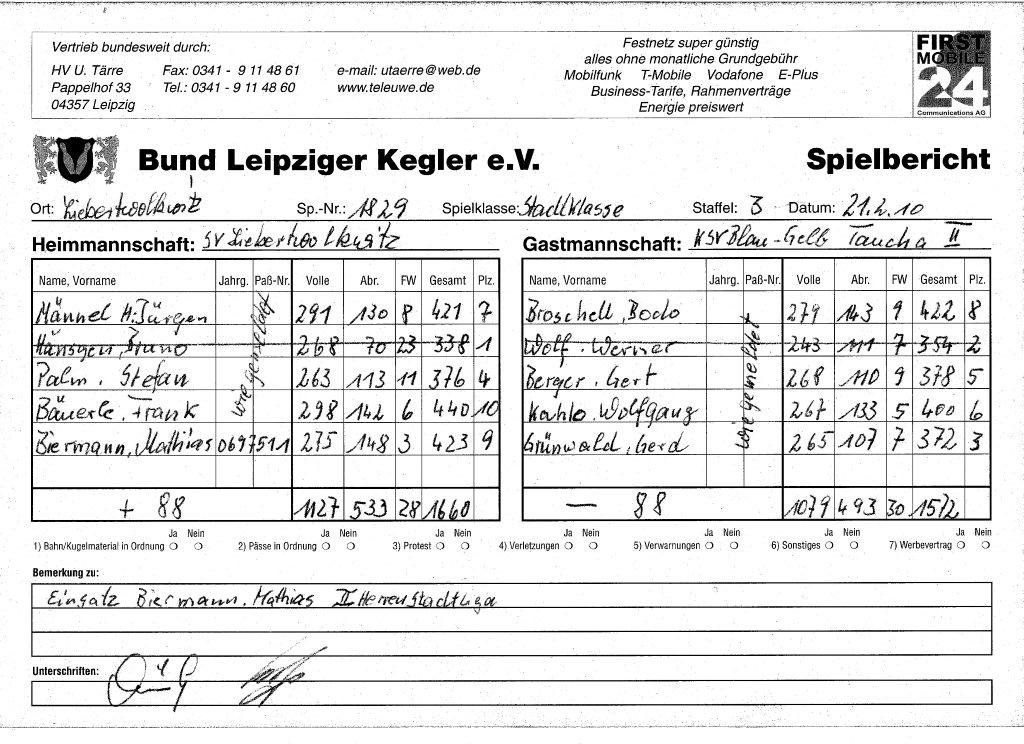 Vertrieb bundesweit durch:
HV U. Tärre Fax: 0341 - 9 11 48 61 e-mail: utaerre@web.de
Pappelhof 33 Tel.: 0341 - 9 11 48 60 www.teleuwe.de
04357 Leipzig
Festnetz super günstig
alles ohne monatliche Grundgebühr
Mobilfunk T-Mobile Vodafone E-Plus
Business-Tarife, Rahmenverträge
Energie preiswert
FIRST
MOBILE
24
Communications AG
Bund Leipziger Kegler e.V. Spielbericht
Ort: Liebertwolkwitz Sp.-Nr.: 1829 Spielklasse: Stadtklasse Staffel: 3 Datum: 21.2.10
Heimmannschaft: SV Liebertwolkwitz Gastmannschaft: KSV Blau-Gelb Taucha II
Name, Vorname Jahrg. Paß-Nr. Volle Abr. FW Gesamt Plz. Name, Vorname Jahrg. Paß-Nr. Volle Abr. FW Gesamt Plz.
Männel H.Jürgen 291 130 8 421 7 Broschell, Bodo 279 143 9 422 8
Hänsgen, Bruno 268 70 23 338 1 Wolf, Werner 243 111 7 354 2
Palm, Stefan 263 113 11 376 4 Berger, Gert 268 110 9 378 5
Bäuerle, Frank 298 142 6 440 10 Kahlo, Wolfgang 267 133 5 400 6
Biermann, Mathias 0697511 275 148 3 423 9 Grünwald, Gerd 265 107 7 372 3
wie gemeldet wie gemeldet
+ 88 1127 533 28 1660 — 88 1079 493 30 1572
Ja Nein Ja Nein Ja Nein Ja Nein Ja Nein Ja Nein Ja Nein
1) Bahn/Kugelmaterial in Ordnung 2) Pässe in Ordnung 3) Protest 4) Verletzungen 5) Verwarnungen 6) Sonstiges 7) Werbevertrag
Bemerkung zu:
Einsatz Biermann, Mathias II Herren Stadtliga
Unterschriften: